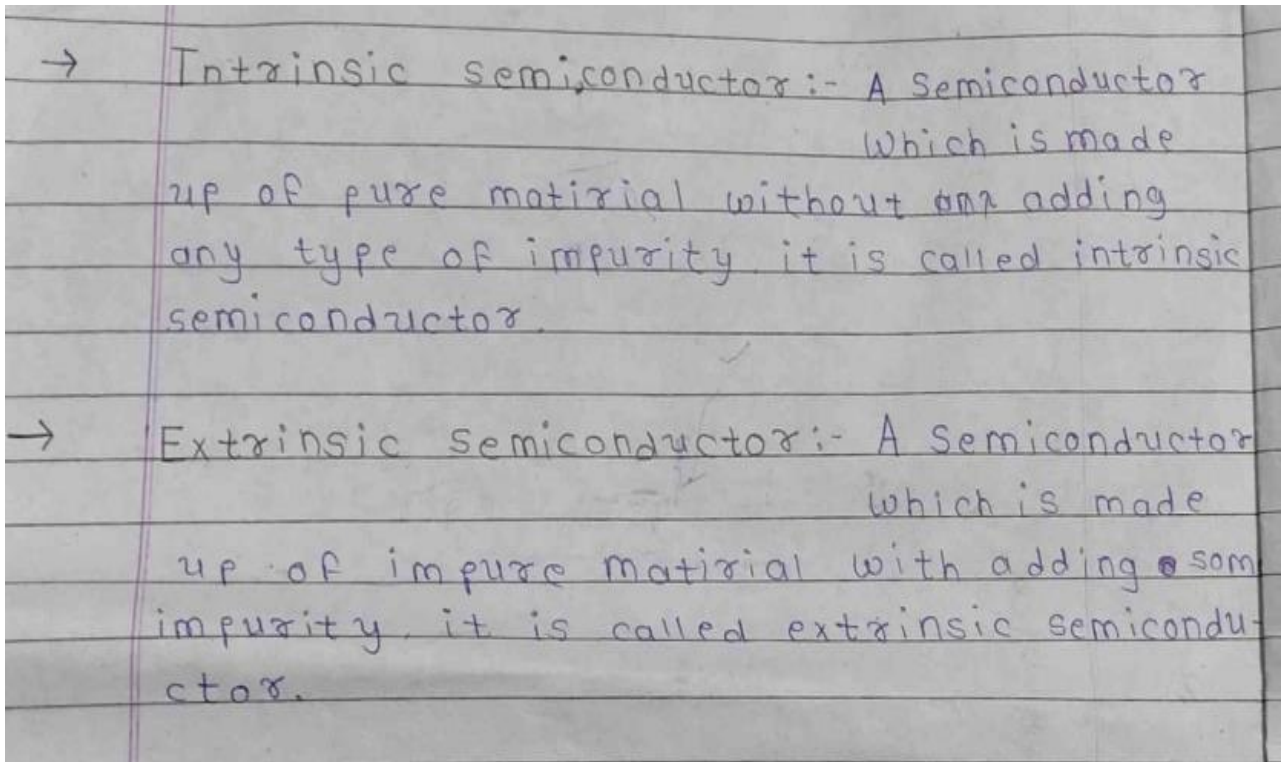 → Intrinsic semiconductor :- A Semiconductor
Which is made
up of pure matirial without adding
any type of impurity. it is called intrinsic
semiconductor.
→ Extrinsic semiconductor :- A Semiconductor
which is made
up of impure matirial with adding som
impurity. it is called extrinsic semicondu-
ctor.